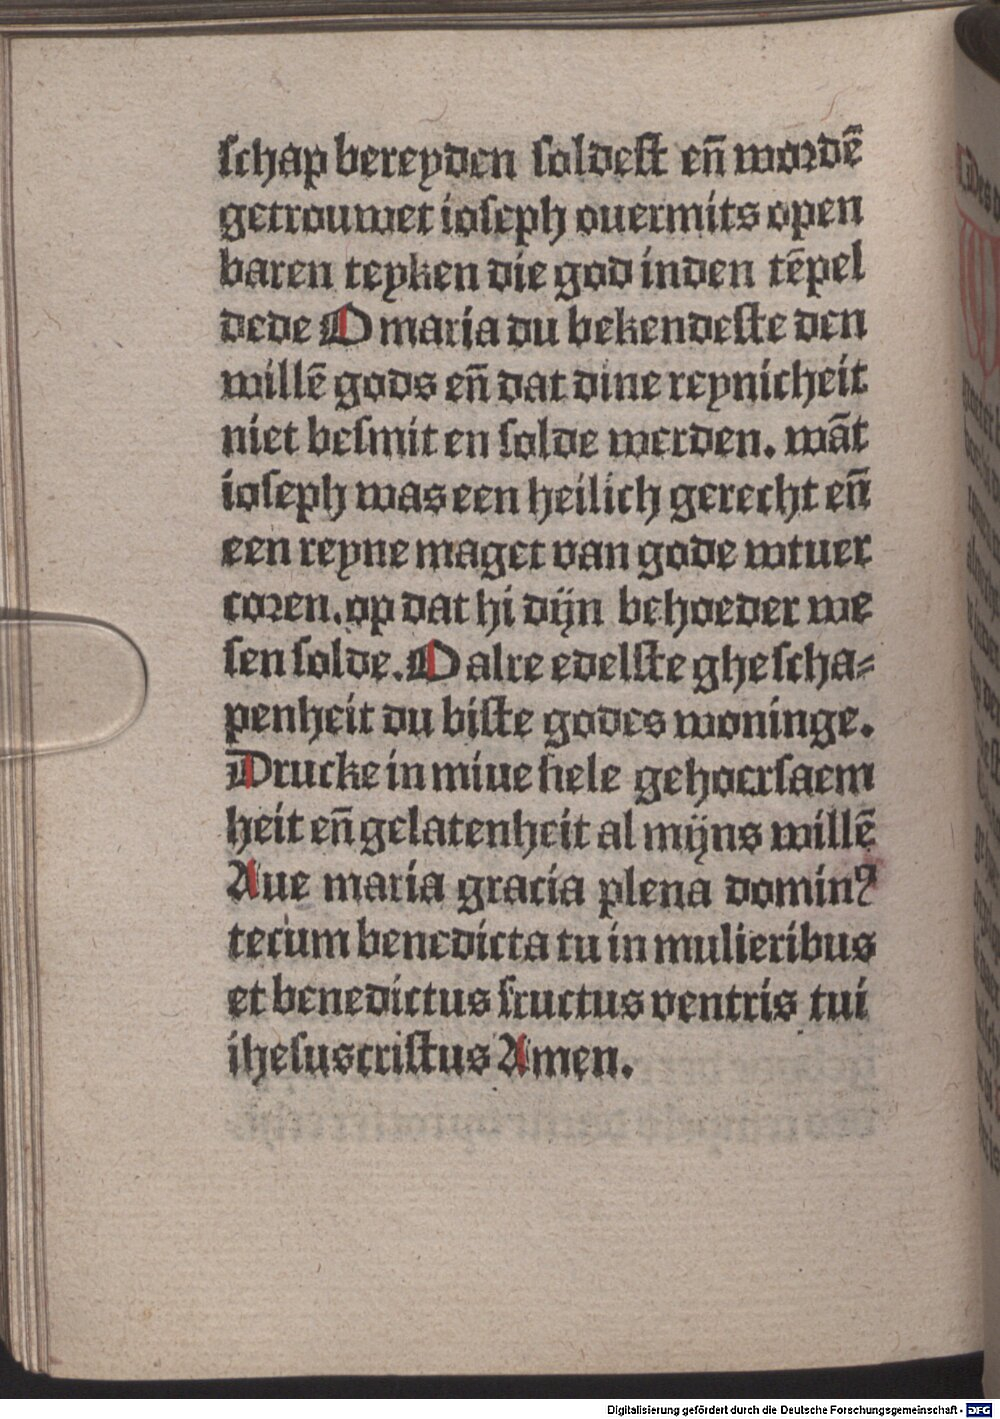 schap bereyden soldest en̄ wordē
getrouwet ioseph ouermits open
baren teyken die god inden tēpel
dede O maria du bekendeste den
willē gods en̄ dat dine reynicheit
niet besmit en solde werden. wāt
ioseph was een heilich gerecht en̄
een reyne maget van gode wtuer
coren. op dat hi dijn behoeder we
sen solde. O alre edelste ghescha⸗
penheit du biste godes woninge.
Drucke in miue siele gehoersaem
heit en̄ gelatenheit al mijns willē
Aue maria gracia plena dominꝰ
tecum benedicta tu in mulieribus
et benedictus fructus ventris tui
ihesus cristus Amen.
Digitalisierung gefördert durch die Deutsche Forschungsgemeinschaft - DFG